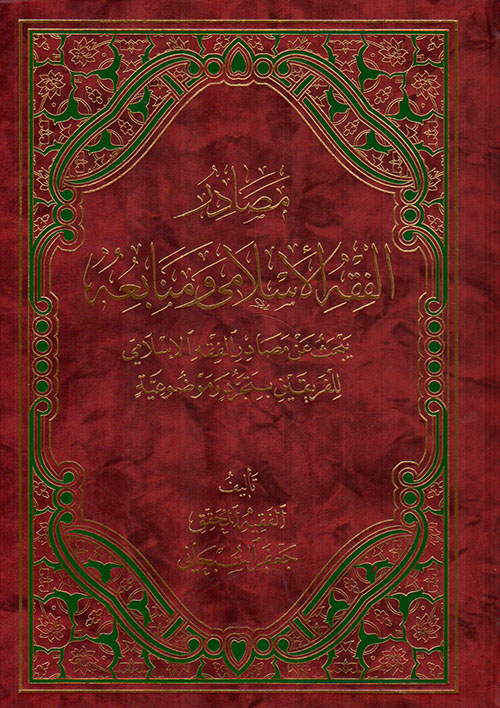 مَصَادِرُ
الفِقْهِ الإِسْلَامِي وَمَنَابِعُهُ
يبحث عن مصادر الفقه الإسلامي
للفريقين بتجرّد وموضوعيّة
تأليف
الفقيه المحقق
جعفر السبحاني